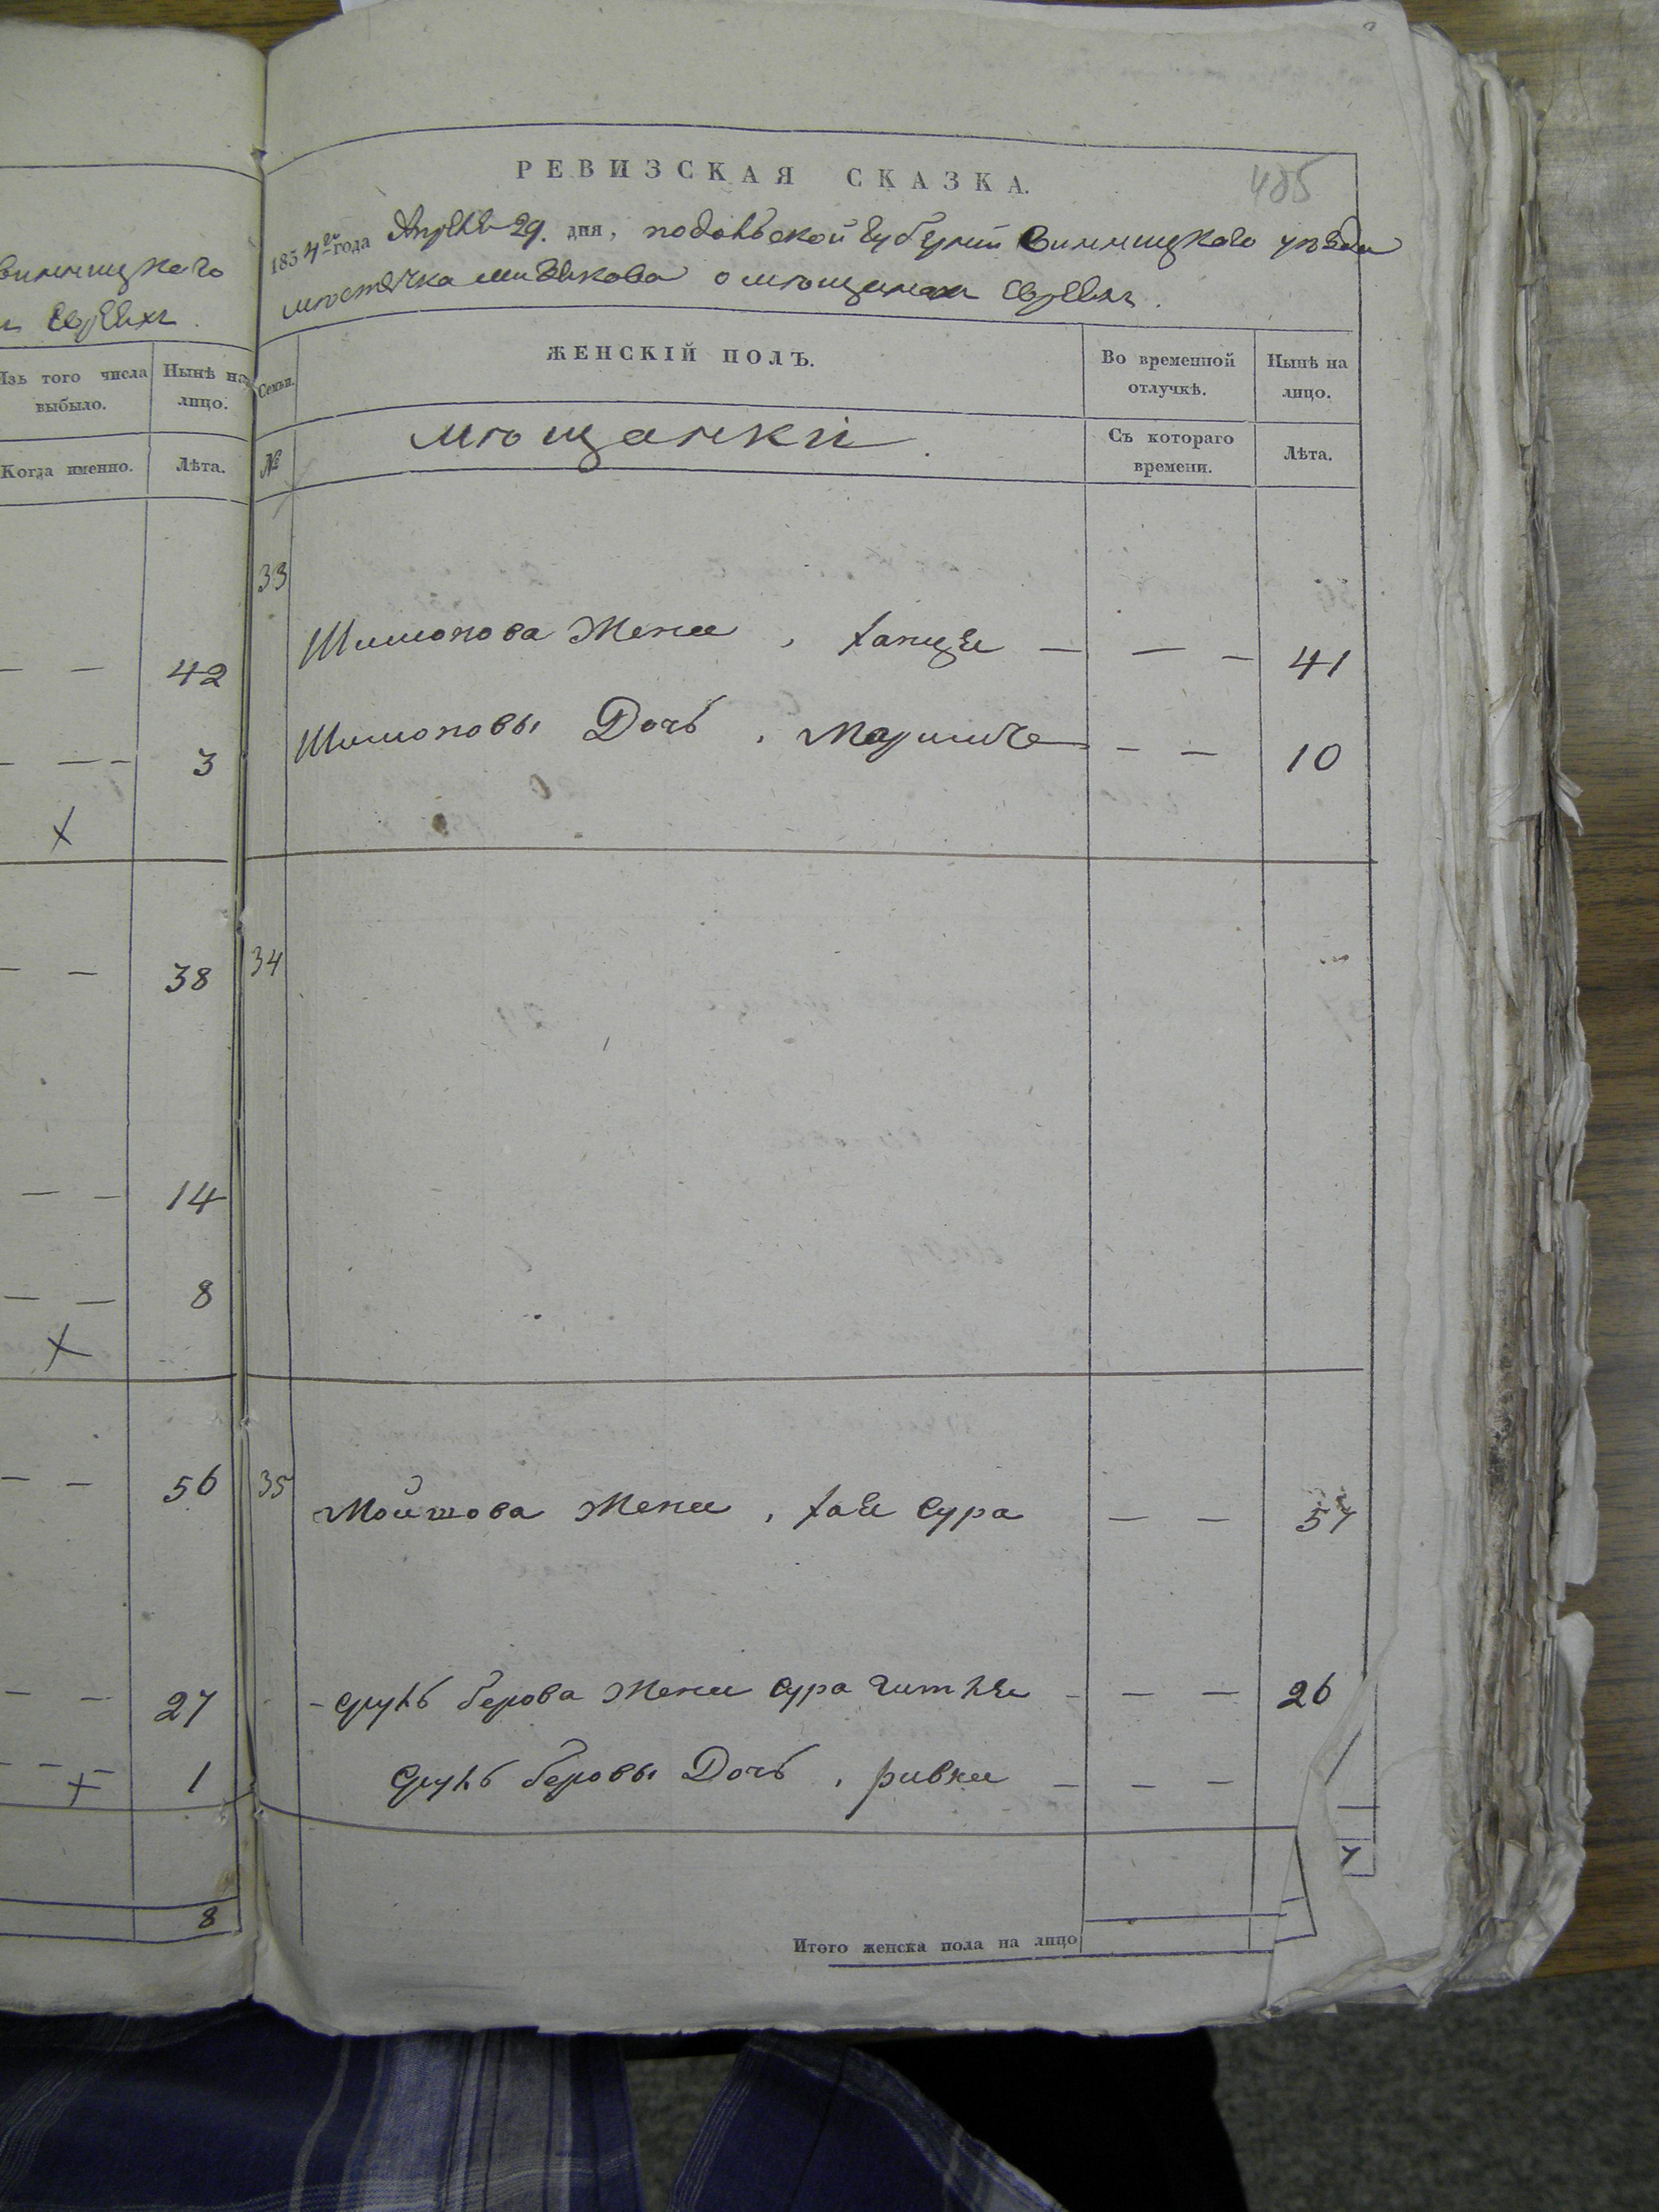 винницкаго
Евреяхъ.
Изъ того числа
выбыло.
Нынѣ на
лицо.
Когда именно.
Лѣта.
42
3
38
14
8
56
27
1
8
РЕВИЗСКАЯ СКАЗКА.
485
1854го года Апреля 29. дня, подольской Губерніи Винницкаго уѣзда
мѣстечка о мѣщанахъ Евреяхъ.
Семьи.
ЖЕНСКІЙ ПОЛЪ.
Во временной
отлучкѣ.
Нынѣ на
лицо.
№
мѣщанки.
Съ котораго
времени.
Лѣта.
33
Шимонова Жена, Ханця — — — 41
Шимоновы Дочь, — — 10
34
35
Мошкова Жена, Хая Сура — — 57
Срулъ Берова Жена Сура Гитля — — — 26
Срулъ Беровы Дочь, ривка — — — 1
7
Итого женска пола на лицо